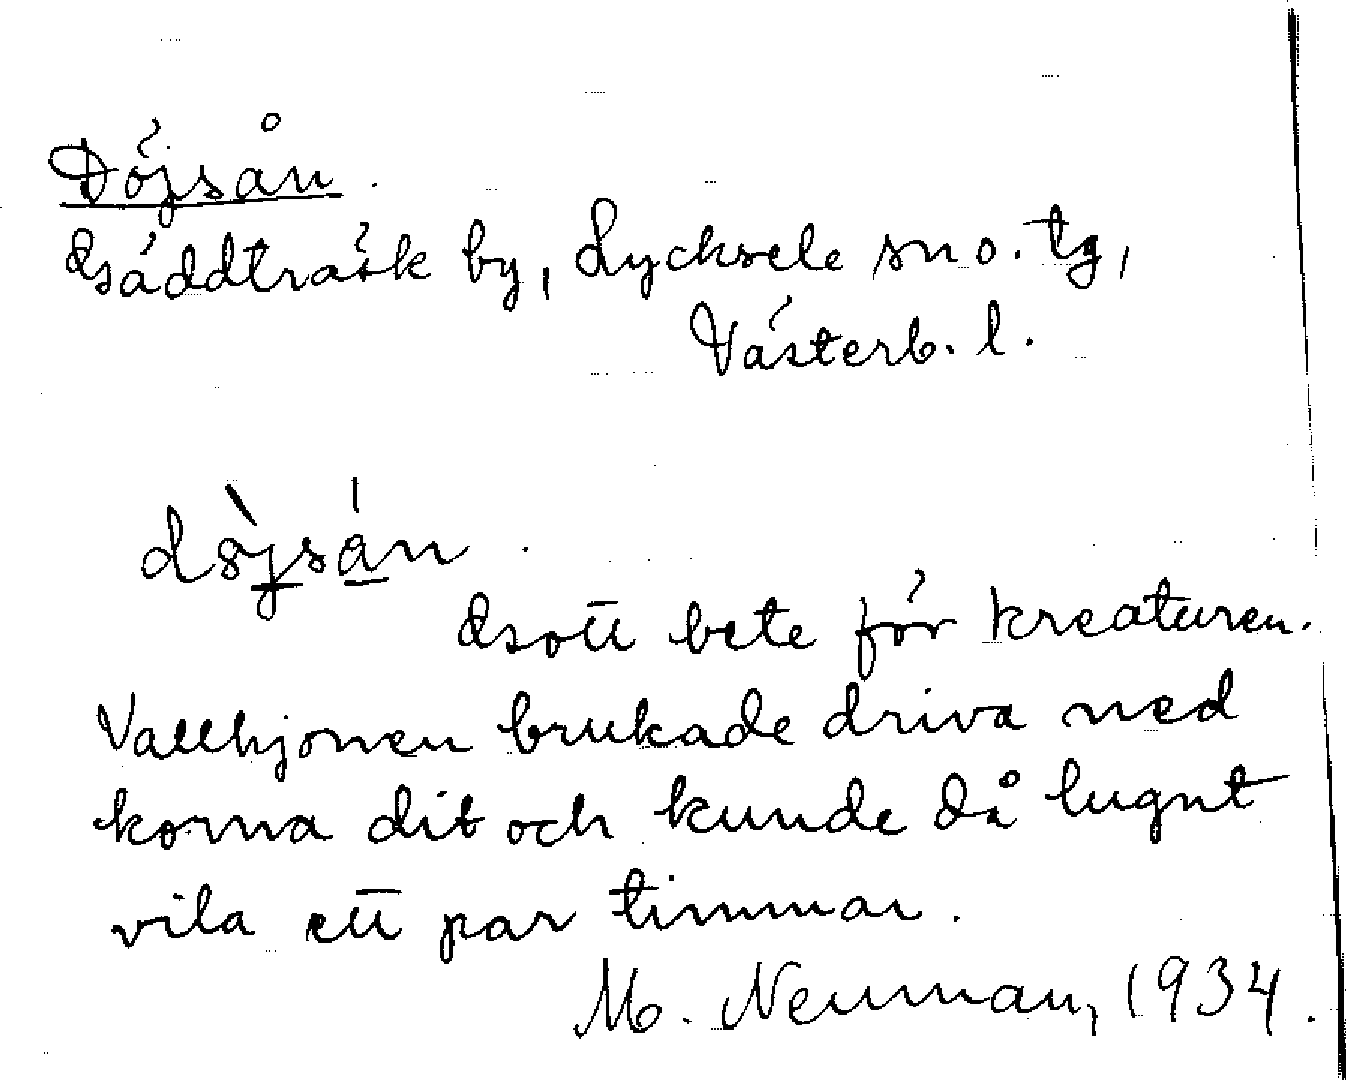 Döjsån.
Gäddträsk by, Lycksele sn o. tg,
Västerb. l.
Gott bete för kreaturen.
Vallhjonen brukade driva ned
korna dit och kunde då lugnt
vila ett par timmar.
M. Neuman, 1934.